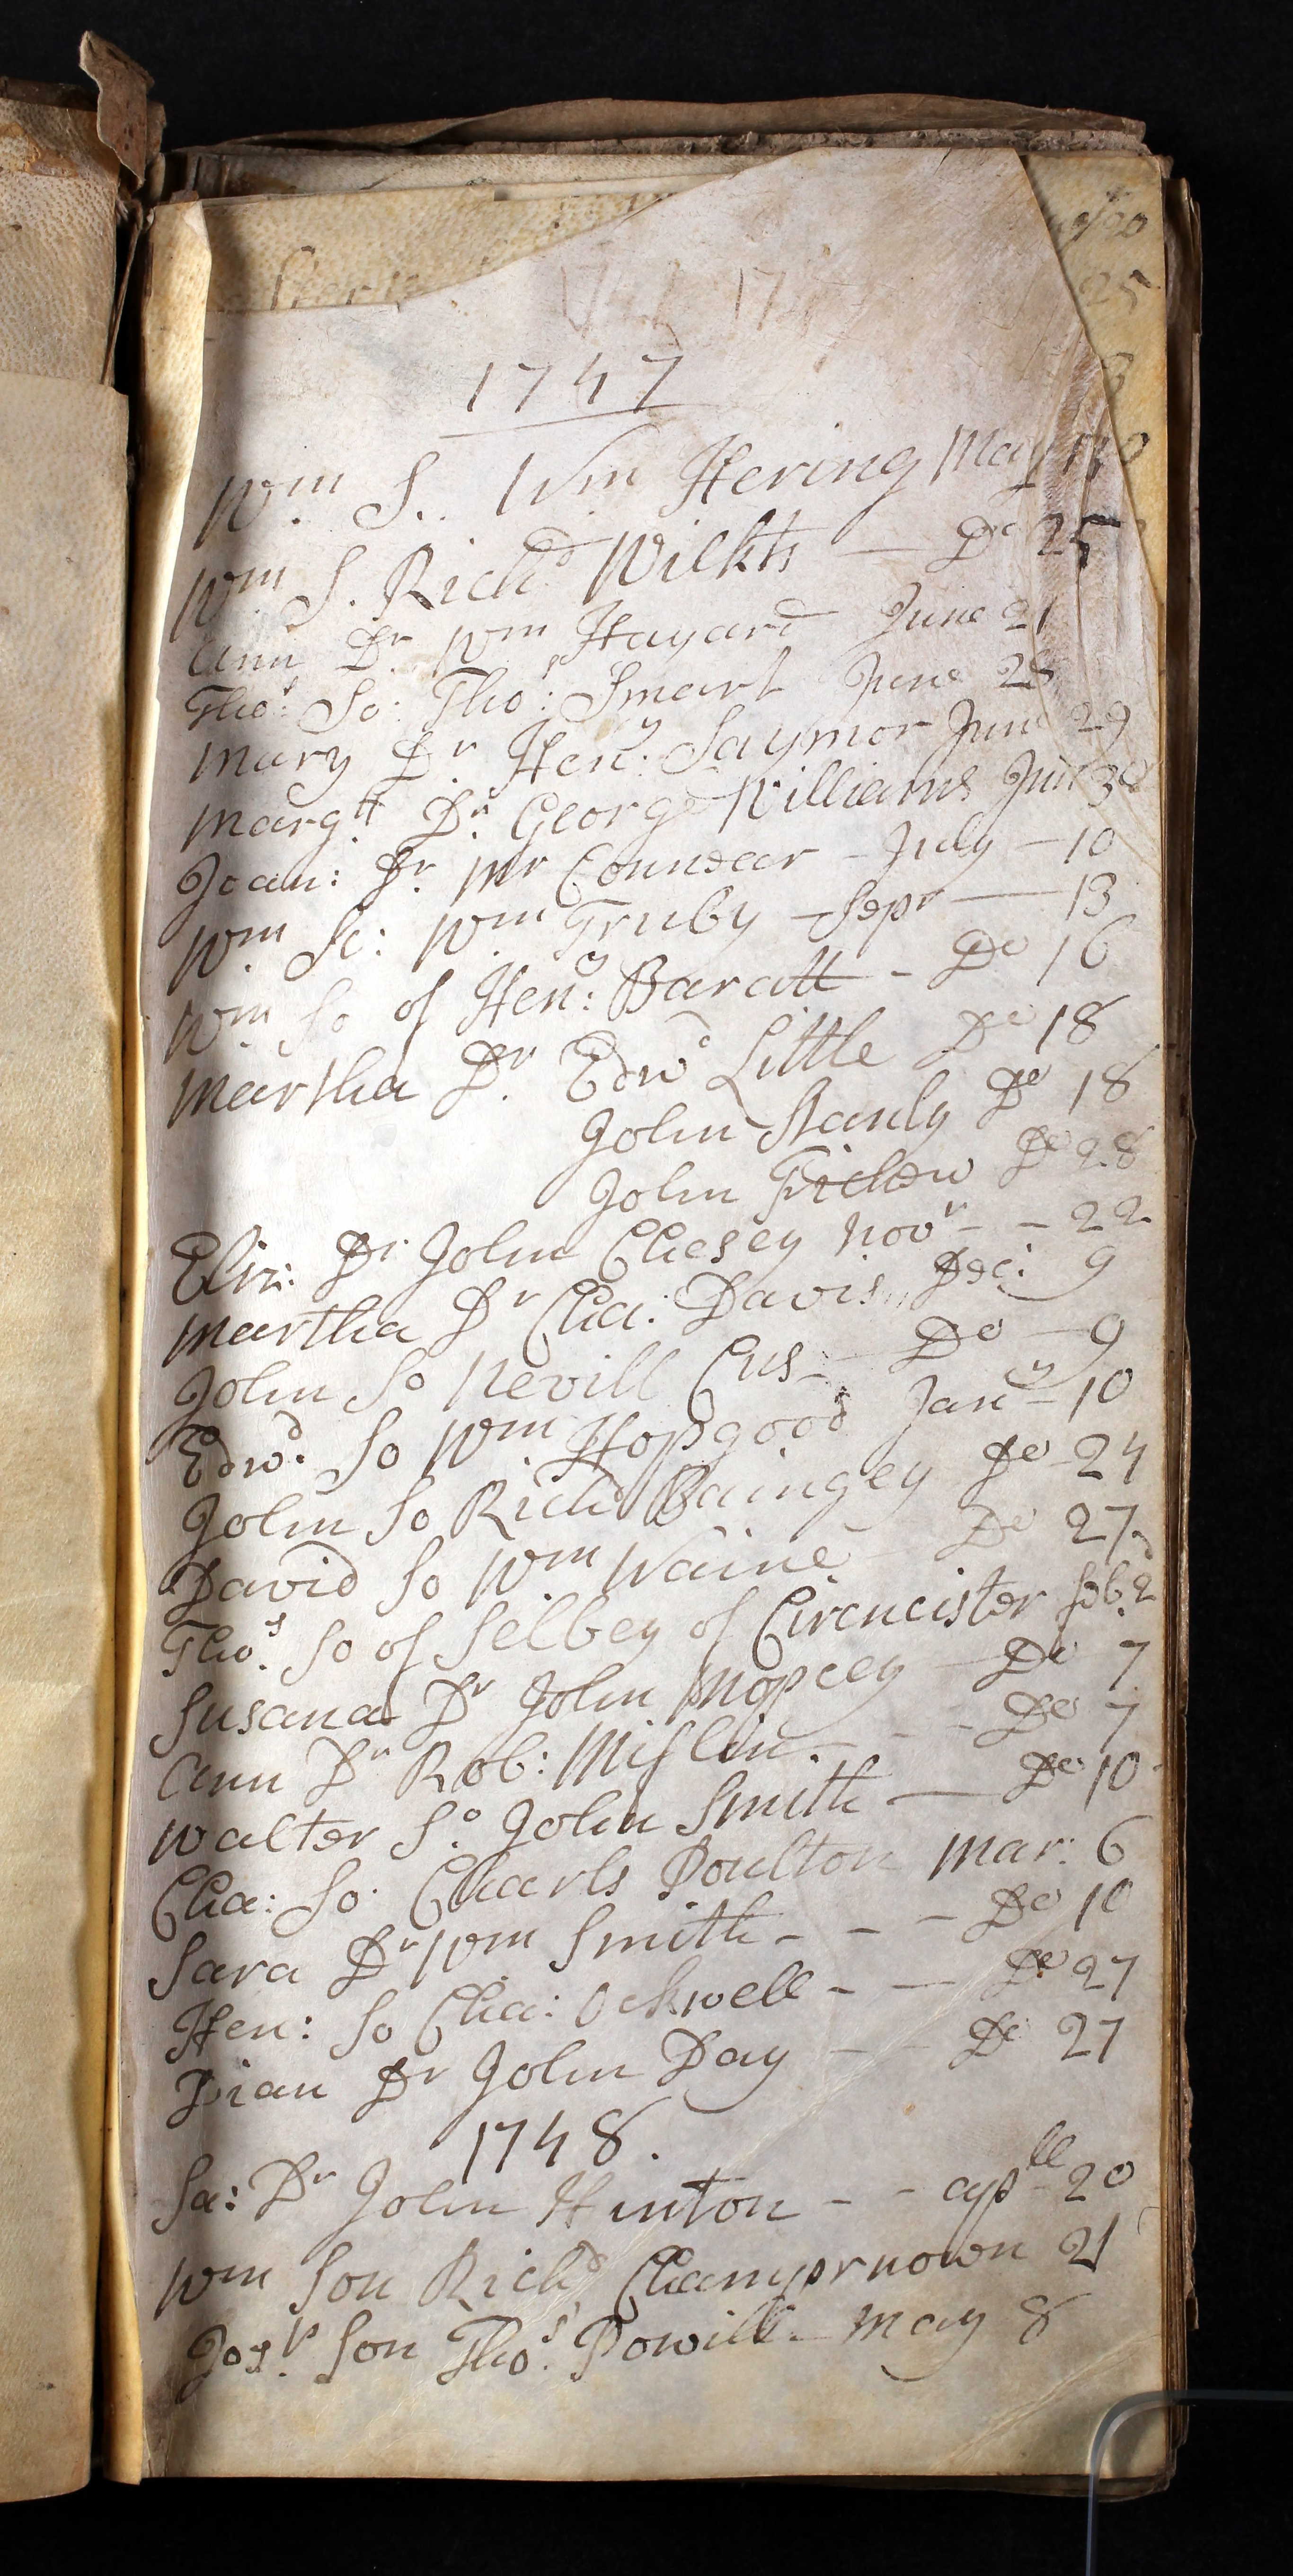 1747
Wm S.. Wm Hering May
Wm S. Richd Wilkts — Do 25
Ann Dr Wm Hayard June 21
Thos: So: Thos: Smart June 28
Mary Dr Heny: Saymor Jun 29
Margtt Dr George Williams Jun 30
Joan: Dr Mr Coundear - July - 10
Wm So: Wm Truby - Sepr — 13
Wm So of Heny: Baratt - Do 16
Martha Dr Edwd Little Do 18
John Stanly Do 18
John Do 28
Eliz: Dr John Chesey Novr - - 22
Martha Dr Cha: Davis Dec: 9
John So Nevill Cus - Do - 9
Edwd So Wm Hopgood Jany - 10
John So Richd Baingey Do - 24
David So Wm Waine - Do 27
Thos So of Selbey of Circncister Feb 2
Susana Dr John Mopcey - Do 7
Ann Dr Rob: Mislin. - - Do 7
Walter So John Smith — Do 10
Cha: So: Charls Poulton Mar: 6
Sara Dr Wm Smith - - - Do 10
Hen: So Cha: Ockwell - — Do 27
Dian Dr John Day - - Do 27
1748.
Sa: Dr John Hinton - - apll 20
Wm Son Richd Champrnown 21
Josp Son Thos Powill - May 8